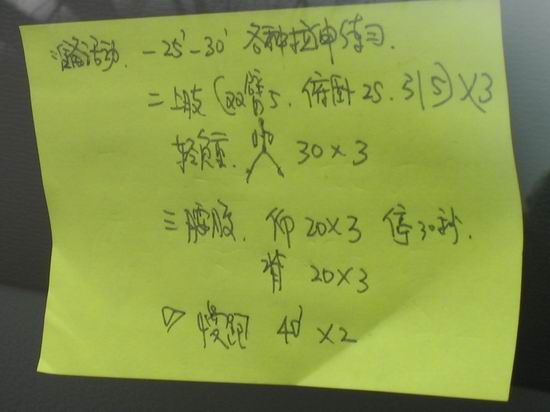 准备活动. 一25'-30' 各种拉伸练习.
二上肢 (双臂5. 俯卧25. 引5)×3
轻负重. 30×3
三腰腹. 仰20×3 停30秒.
背 20×3
▽ 慢跑 40' ×2